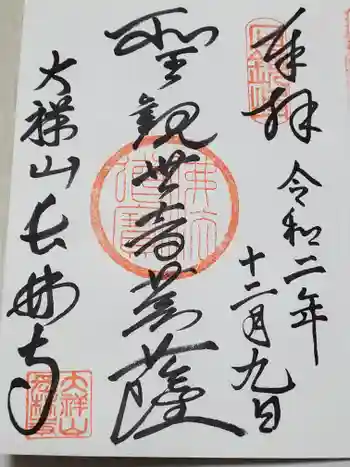 奉拝
令和二年
十二月九日
聖観世音菩薩
佛法
僧寶
大祥山長林寺
大祥山
長林寺